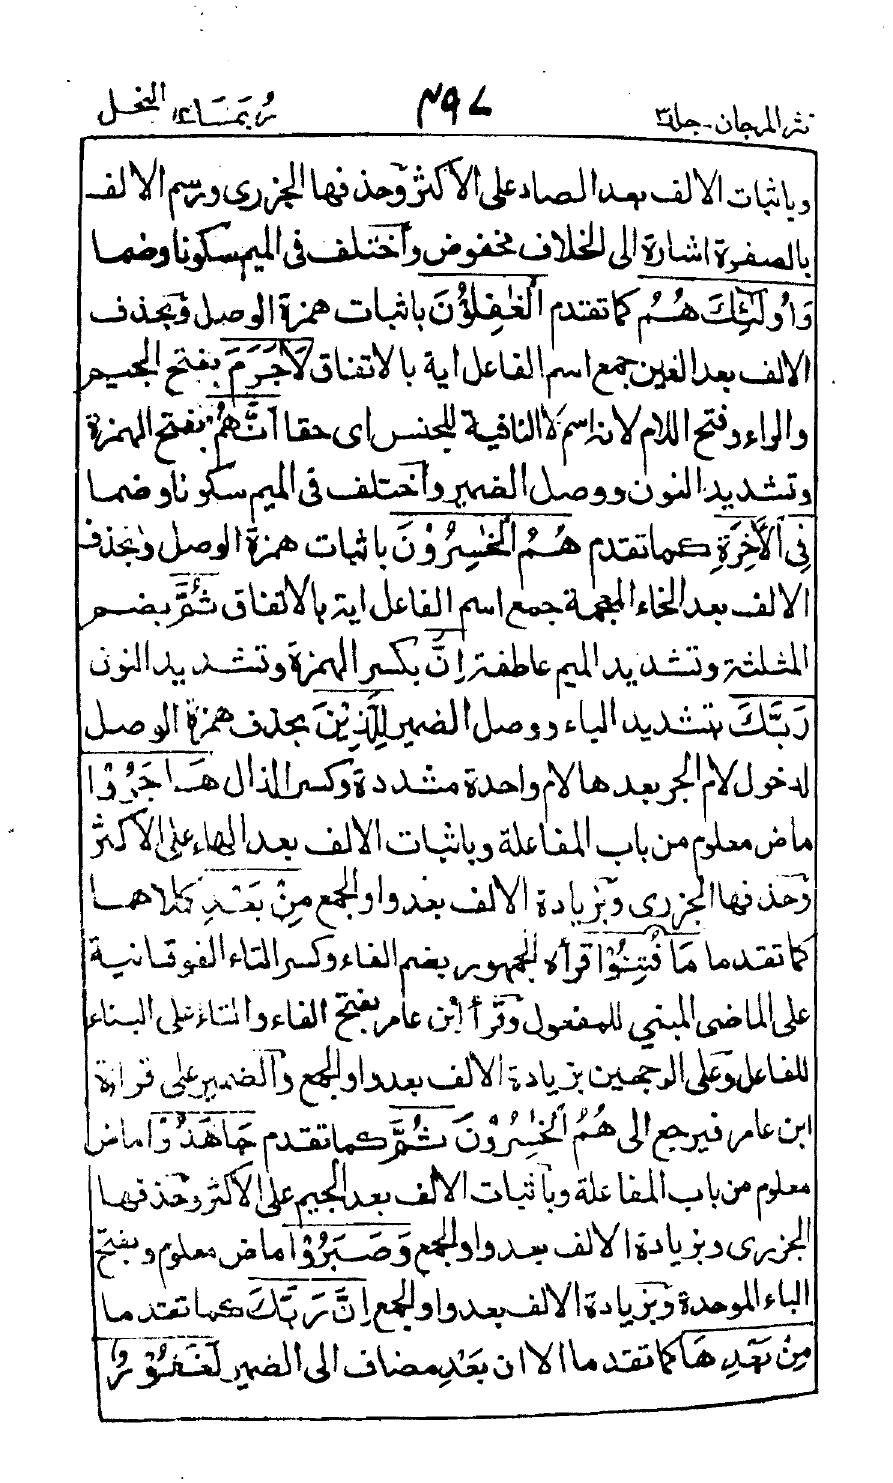 نثر المرجان - جلد٣
٣٩٧
ربما١٤ النحل
وباثبات الالف بعد الصاد على الأكثر وحذفها الجزرى ورسم الالف
بالصفرة اشارة الى الخلاف مخفوض واختلف فى الميم سكونا وضما
وَاُولٰٓئِكَ هُمُ كما تقدم الْغٰفِلُوْنَ باثبات همزة الوصل وبحذف
الالف بعد الغين جمع اسم الفاعل اية بالاتفاق لَاجَرَمَ بفتح الجيم
والراء وفتح اللام لانه اسم لا النافية للجنس اى حقا اَنَّهُمْ بفتح الهمزة
وتشديد النون ووصل الضمير واختلف فى الميم سكونا وضما
فِى الْاٰخِرَةِ كما تقدم هُمُ الْخٰسِرُوْنَ باثبات همزة الوصل وبحذف
الالف بعد الخاء المعجمة جمع اسم الفاعل اية بالاتفاق ثُمَّ بضم
المثلثة وتشديد الميم عاطفة اِنَّ بكسر الهمزة وتشديد النون
رَبَّكَ بتشديد الباء ووصل الضمير لِلَّذِيْنَ بحذف همزة الوصل
لدخول لام الجر بعدها لام واحدة مشددة وكسر الذال هَاجَرُوْا
ماض معلوم من باب المفاعلة وباثبات الالف بعد الهاء على الأكثر
وحذفها الجزرى وبزيادة الالف بعد واو الجمع مِنْ بَعْدِ كلاهما
كما تقدما مَا فُتِنُوْا قرأه الجمهور بضم الفاء وكسر التاء الفوقانية
على الماضى المبنى للمفعول وقرأ ابن عامر بفتح الفاء والتاء على البناء
للفاعل وعلى الوجهين بزيادة الالف بعد واو الجمع والضمير على قراءة
ابن عامر فيرجع الى هُمُ الْخٰسِرُوْنَ ثُمَّ كما تقدم جَاهَدُوْا ماض
معلوم من باب المفاعلة وباثبات الالف بعد الجيم على الأكثر وحذفها
الجزرى وبزيادة الالف بعد واو الجمع وَصَبَرُوْا ماض معلوم وبفتح
الباء الموحدة وبزيادة الالف بعد واو الجمع اِنَّ رَبَّكَ كما تقدما
مِنْ بَعْدِهَا كما تقدما الا ان بَعْدِ مضاف الى الضمير لَغَفُوْرٌ